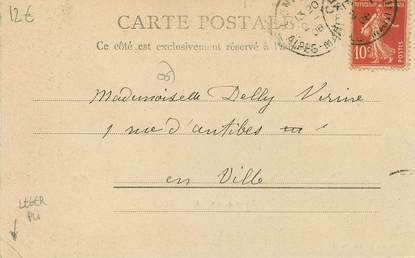 12€
CARTE POSTALE
Ce côté est exclusivement réservé à l'
13 20
06
ALPES-M
10c
POSTES
Mademoiselle Delly Verine
1 rue d'antibes
en Ville
LEGER
PLI